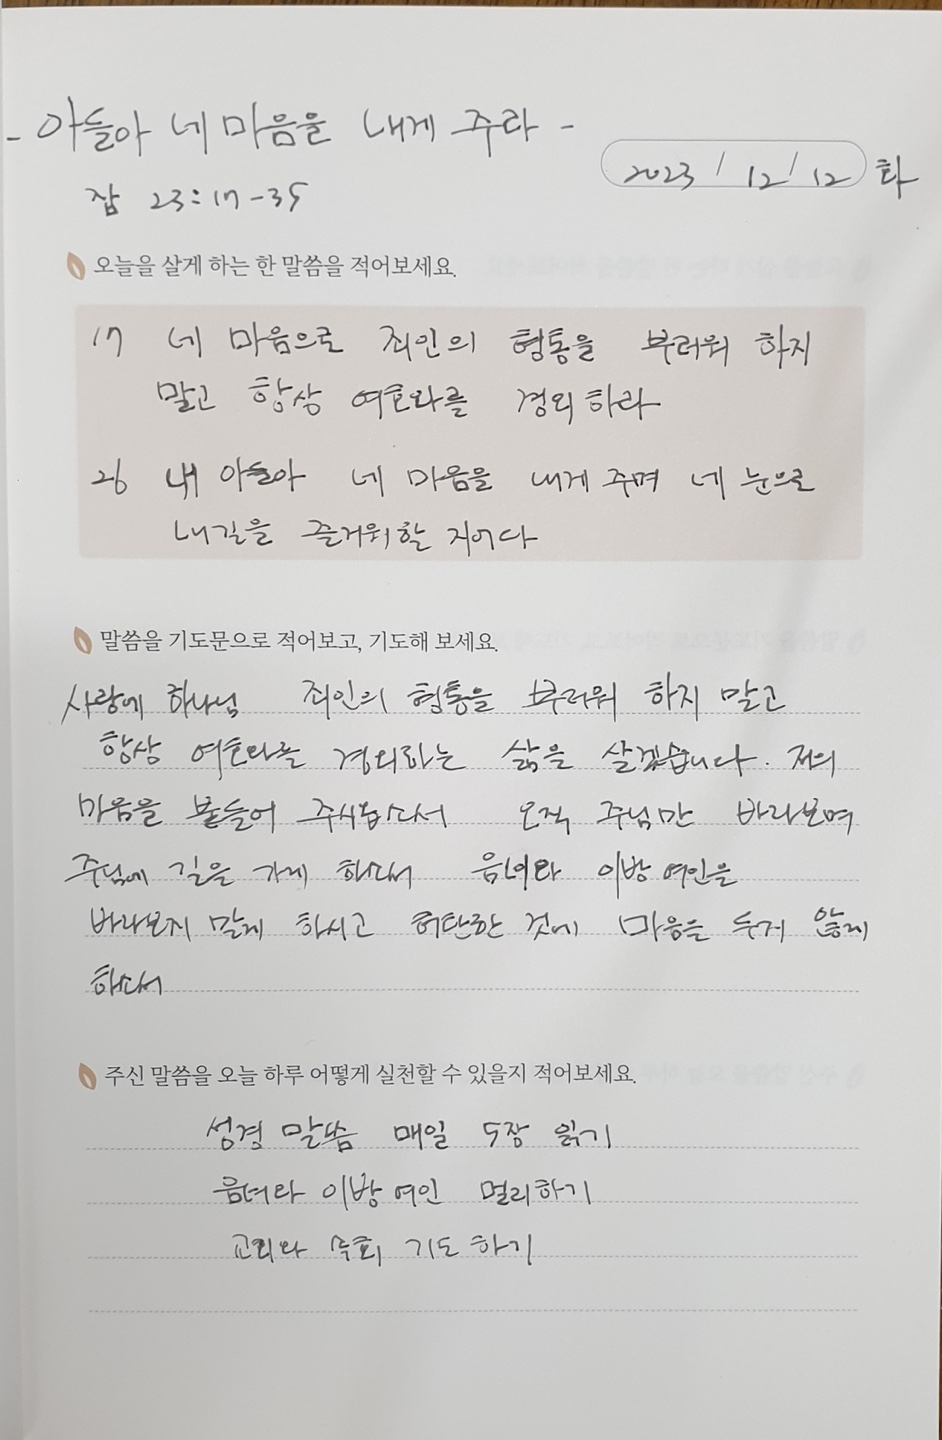 - 아들아 네 마음을 내게 주라 -
2023 / 12 / 12 화
잠 23:17-35
오늘을 살게 하는 한 말씀을 적어보세요.
17 네 마음으로 죄인의 형통을 부러워 하지
말고 항상 여호와를 경외하라
26 내 아들아 네 마음을 내게 주며 네 눈으로
내길을 즐거워할 지어다
말씀을 기도문으로 적어보고, 기도해 보세요.
사랑에 하나님 죄인의 형통을 부러워 하지 말고
항상 여호와를 경외하는 삶을 살겠습니다. 저의
마음을 붙들어 주시옵소서 오직 주님만 바라보며
주님에 길을 가게 하소서 음녀와 이방 여인을
바라보지 말게 하시고 허탄한 것에 마음을 두지 않게
하소서
주신 말씀을 오늘 하루 어떻게 실천할 수 있을지 적어보세요.
성경 말씀 매일 5장 읽기
음녀와 이방 여인 멀리하기
교회와 기도 하기